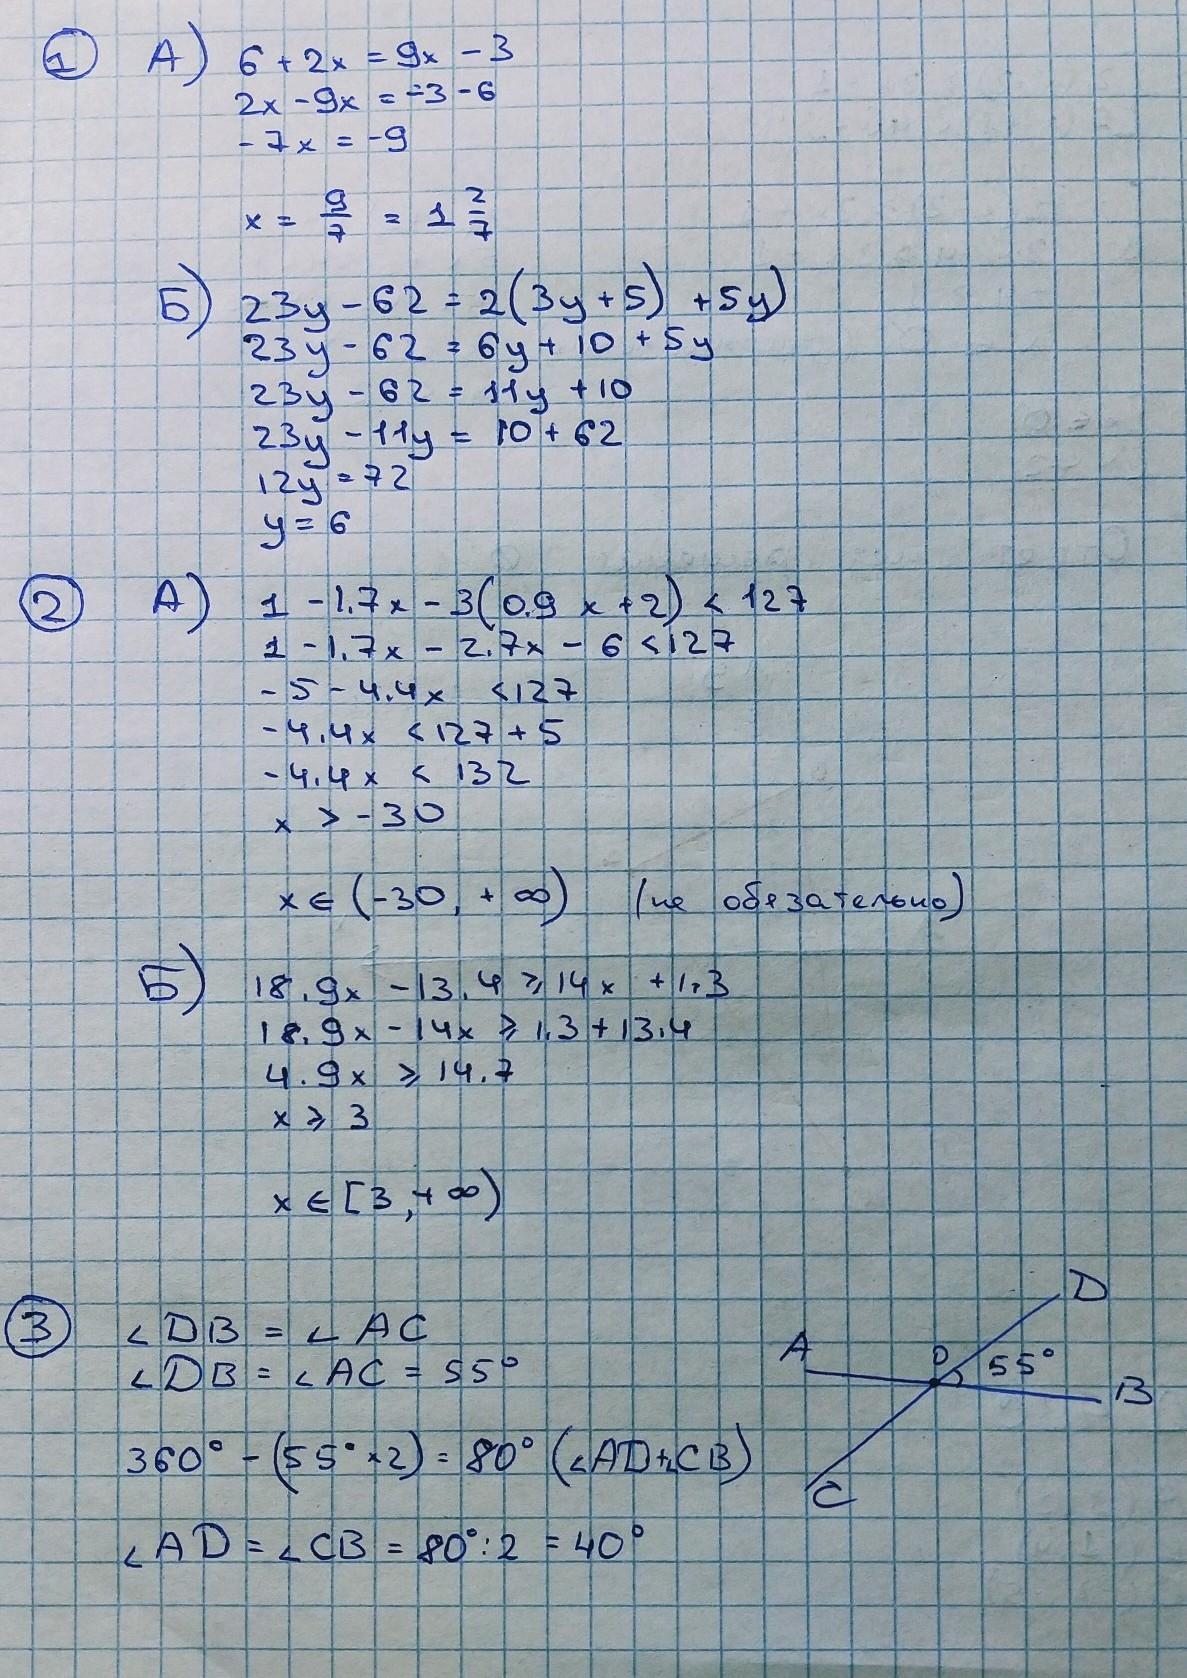 1 А) 6 + 2x = 9x - 3
2x - 9x = -3 - 6
-7x = -9
x = 9/7 = 1 2/7
Б) 23y - 62 = 2(3y + 5) + 5y)
23y - 62 = 6y + 10 + 5y
23y - 62 = 11y + 10
23y - 11y = 10 + 62
12y = 72
y = 6
2 А) 1 - 1.7x - 3(0.9 x + 2) < 127
1 - 1.7x - 2.7x - 6 < 127
-5 - 4.4x < 127
-4.4x < 127 + 5
-4.4x < 132
x > -30
x ∈ (-30, + ∞) (не обязательно)
Б) 18.9x - 13.4 ⩾ 14x + 1.3
18.9x - 14x ⩾ 1.3 + 13.4
4.9x ⩾ 14.7
x ⩾ 3
x ∈ [3, + ∞)
3 ∠DB = ∠AC
∠DB = ∠AC = 55°
360° - (55° × 2) = 80° (∠AD + ∠CB)
∠AD = ∠CB = 80° : 2 = 40°
D
A O 55°
B
C